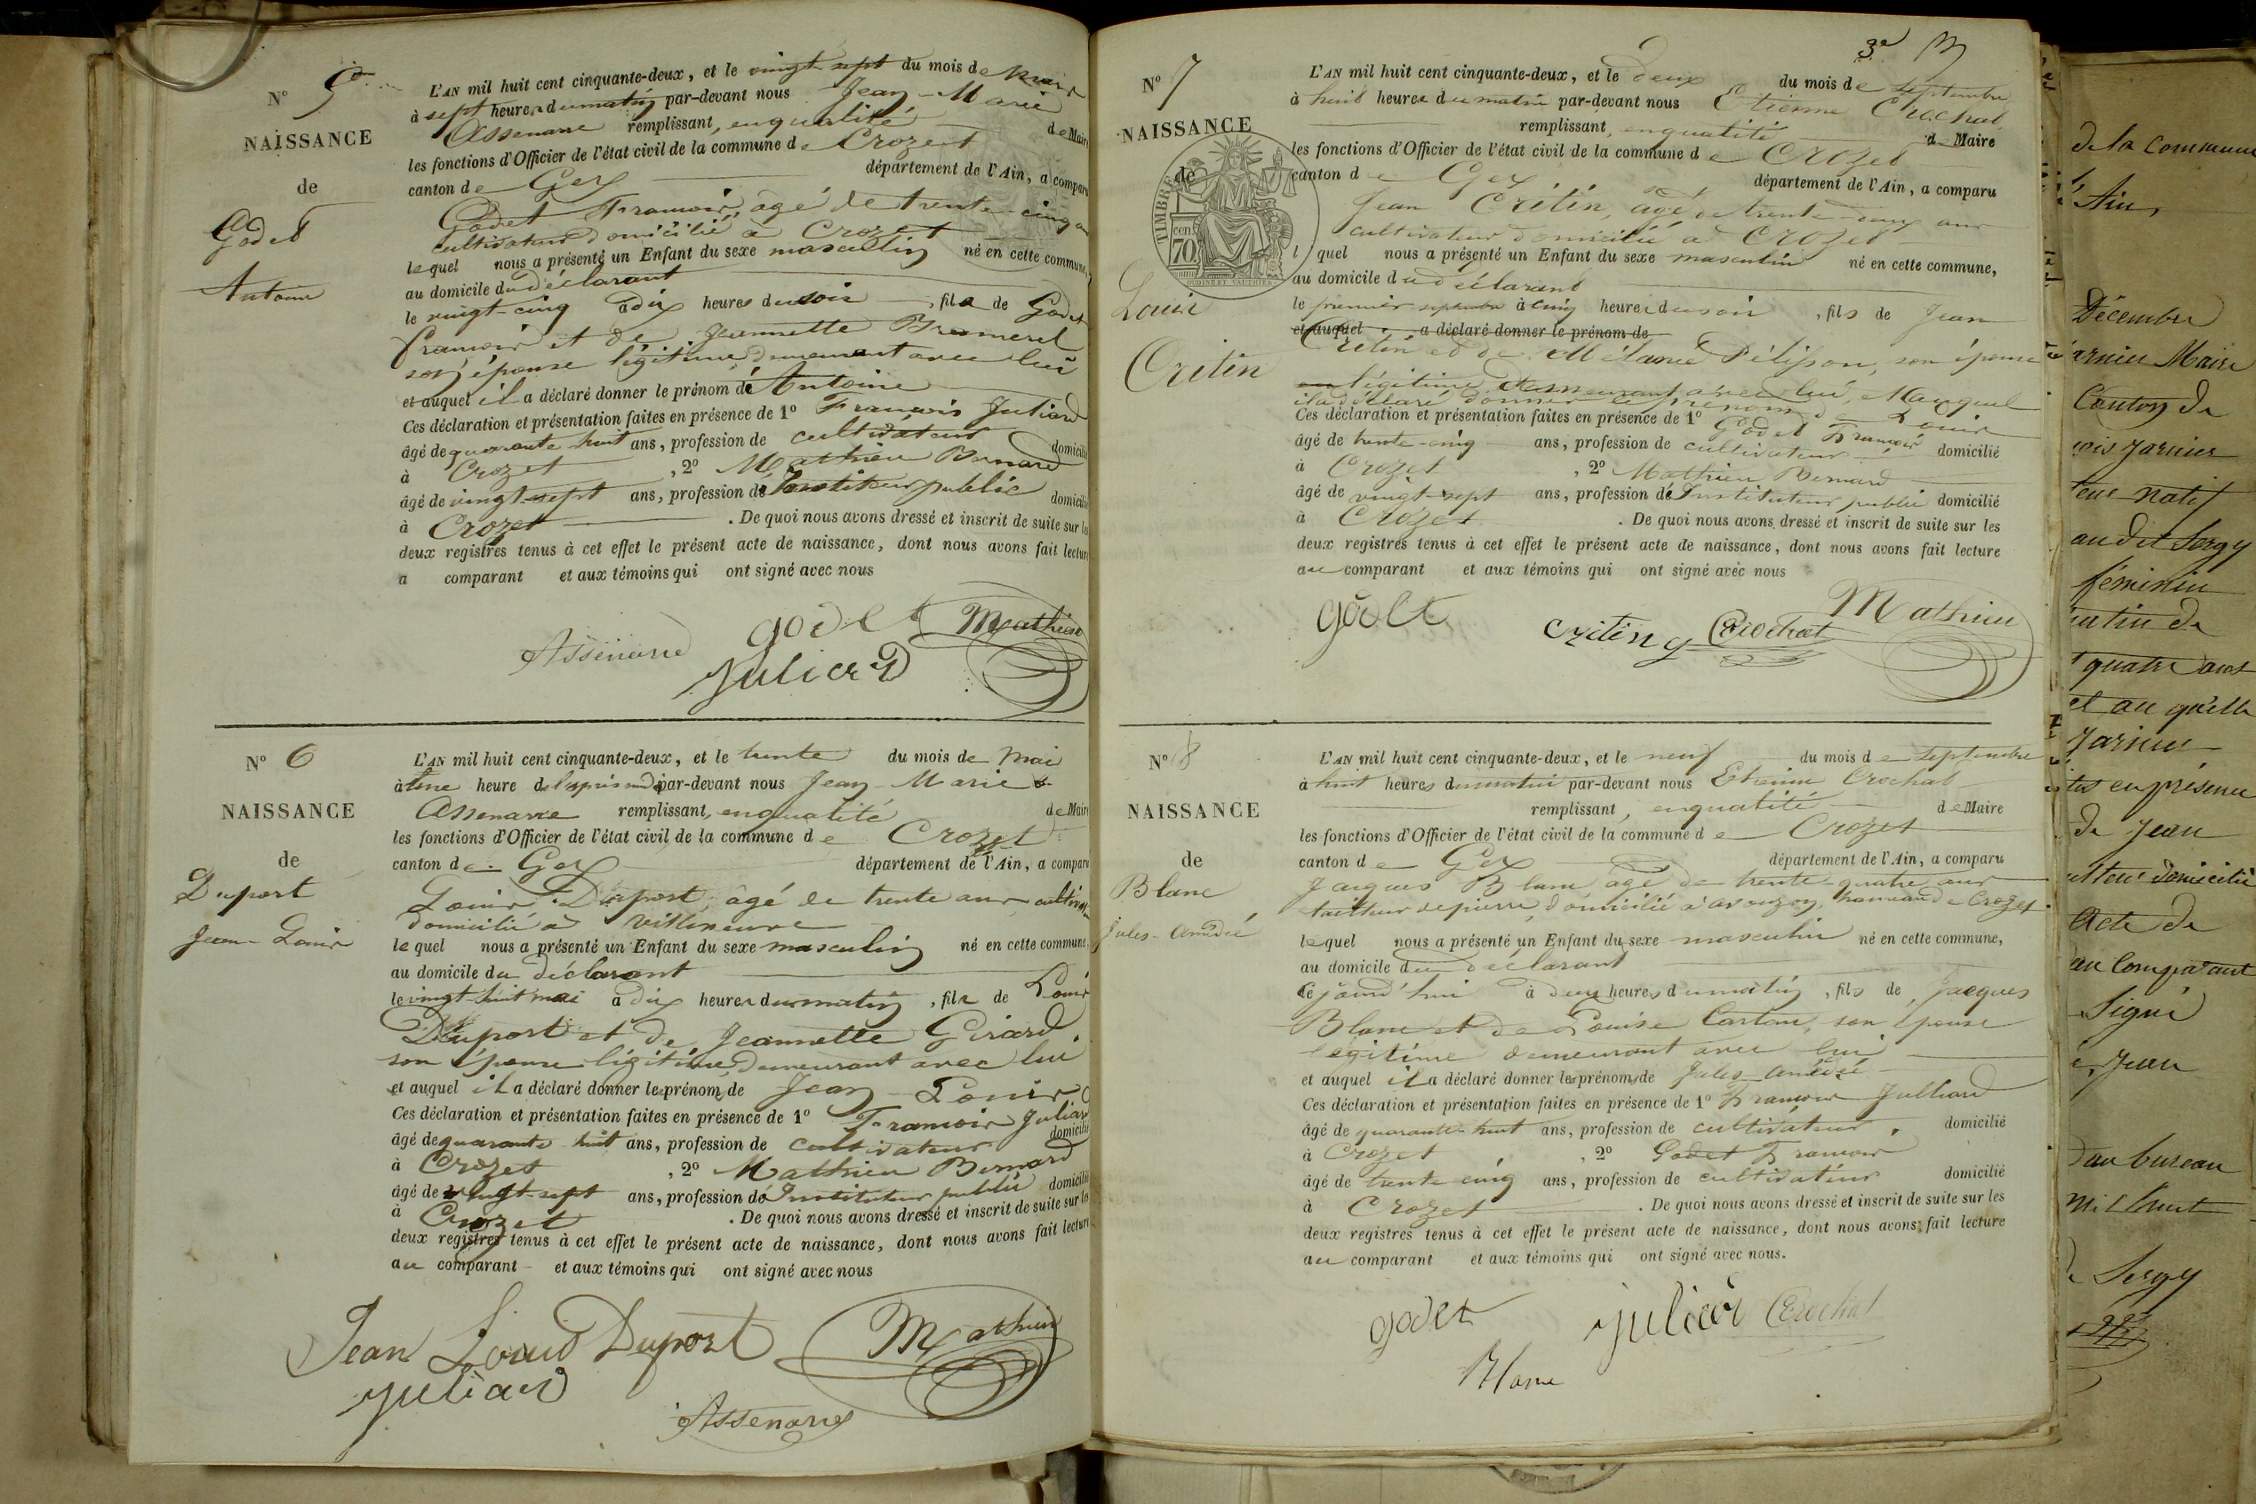 N° 5
NAISSANCE
de
Godet
Antoine
L'AN mil huit cent cinquante-deux, et le vingt-sept du mois de mai
à sept heures du matin par-devant nous Jean-Marie
Assenare remplissant, en qualité de Maire
les fonctions d'Officier de l'état civil de la commune de Crozet
canton de Gex département de l'Ain, a comparu
Godet François, âgé de trente-cinq ans
cultivateur domicilié à Crozet
lequel nous a présenté un Enfant du sexe masculin né en cette commune,
au domicile du déclarant
le vingt-cinq à dix heures du soir, fils de Godet
François et de Jeannette
son épouse légitime demeurant avec lui
et auquel il a déclaré donner le prénom de Antoine
Ces déclaration et présentation faites en présence de 1° François Juliard
âgé de quarante huit ans, profession de cultivateur domicilié
à Crozet, 2° Mathieu Bernard
âgé de vingt-sept ans, profession de Instituteur public domicilié
à Crozet. De quoi nous avons dressé et inscrit de suite sur les
deux registres tenus à cet effet le présent acte de naissance, dont nous avons fait lecture
a comparant et aux témoins qui ont signé avec nous
godet Mathieu
Assenare
Juliard
N° 6
NAISSANCE
de
Duport
Jean-Louis
L'AN mil huit cent cinquante-deux, et le trente du mois de mai
à une heure de l'après midi par-devant nous Jean-Marie
Assenare remplissant, en qualité de Maire
les fonctions d'Officier de l'état civil de la commune de Crozet
canton de Gex département de l'Ain, a comparu
Louis Duport, âgé de trente ans cultivateur
domicilié à Villeneuve
lequel nous a présenté un Enfant du sexe masculin né en cette commune,
au domicile du déclarant
le vingt-huit mai à dix heures du matin, fils de Louis
Duport et de Jeannette Girard
son épouse légitime, demeurant avec lui
et auquel il a déclaré donner les prénoms de Jean-Louis
Ces déclaration et présentation faites en présence de 1° François Juliard
âgé de quarante huit ans, profession de cultivateur domicilié
à Crozet, 2° Mathieu Bernard
âgé de vingt-sept ans, profession de Instituteur public domicilié
à Crozet. De quoi nous avons dressé et inscrit de suite sur les
deux registres tenus à cet effet le présent acte de naissance, dont nous avons fait lecture
au comparant et aux témoins qui ont signé avec nous
Jean Louis Duport Mathieu
Juliard
Assenare
3e
N° 7
NAISSANCE
de
Louis
Critin
TIMBRE
70 cen
L'AN mil huit cent cinquante-deux, et le deux du mois de septembre
à huit heures du matin par-devant nous Etienne Crochat
remplissant, en qualité de Maire
les fonctions d'Officier de l'état civil de la commune de Crozet
canton de Gex département de l'Ain, a comparu
Jean Critin, âgé de trente-deux ans
cultivateur domicilié à Crozet
lequel nous a présenté un Enfant du sexe masculin né en cette commune,
au domicile du déclarant
le premier septembre à cinq heures du soir, fils de Jean
et auquel a déclaré donner le prénom de
Critin et de Mélanie Pélisson, son épouse
légitime demeurant avec lui, Auquel
il a déclaré donner le prénom de Louis
Ces déclaration et présentation faites en présence de 1° Godet François
âgé de trente-cinq ans, profession de cultivateur domicilié
à Crozet, 2° Mathieu Bernard
âgé de vingt-sept ans, profession de Instituteur public domicilié
à Crozet. De quoi nous avons dressé et inscrit de suite sur les
deux registres tenus à cet effet le présent acte de naissance, dont nous avons fait lecture
au comparant et aux témoins qui ont signé avec nous
godet Mathieu
Critin Crochat
N° 8
NAISSANCE
de
Blanc
Jules-Amédée
L'AN mil huit cent cinquante-deux, et le neuf du mois de septembre
à huit heures du matin par-devant nous Etienne Crochat
remplissant, en qualité de Maire
les fonctions d'Officier de l'état civil de la commune de Crozet
canton de Gex département de l'Ain, a comparu
Jacques Blanc âgé de trente-quatre ans
tailleur de pierre, domicilié à avouzon, hameau de Crozet
lequel nous a présenté un Enfant du sexe masculin né en cette commune,
au domicile du déclarant
ce jourd'hui à deux heures du matin, fils de Jacques
Blanc et de Louise son épouse
légitime demeurant avec lui
et auquel il a déclaré donner les prénoms de Jules-Amédée
Ces déclaration et présentation faites en présence de 1° François Julliard
âgé de quarante-huit ans, profession de cultivateur, domicilié
à Crozet, 2° Godet François
âgé de trente-cinq ans, profession de cultivateur domicilié
à Crozet. De quoi nous avons dressé et inscrit de suite sur les
deux registres tenus à cet effet le présent acte de naissance, dont nous avons fait lecture
au comparant et aux témoins qui ont signé avec nous.
godet Juliard Crochat
Blanc
de la commune
Ain,
Décembre
Maire
Canton de
natif
au dit Sergy
féminin
matin de
quatre ans
et au qu'elle
en présence
de Jean
domicilié
Acte de
au Comparant
Signé
Jean
au bureau
mil huit
de Sergy